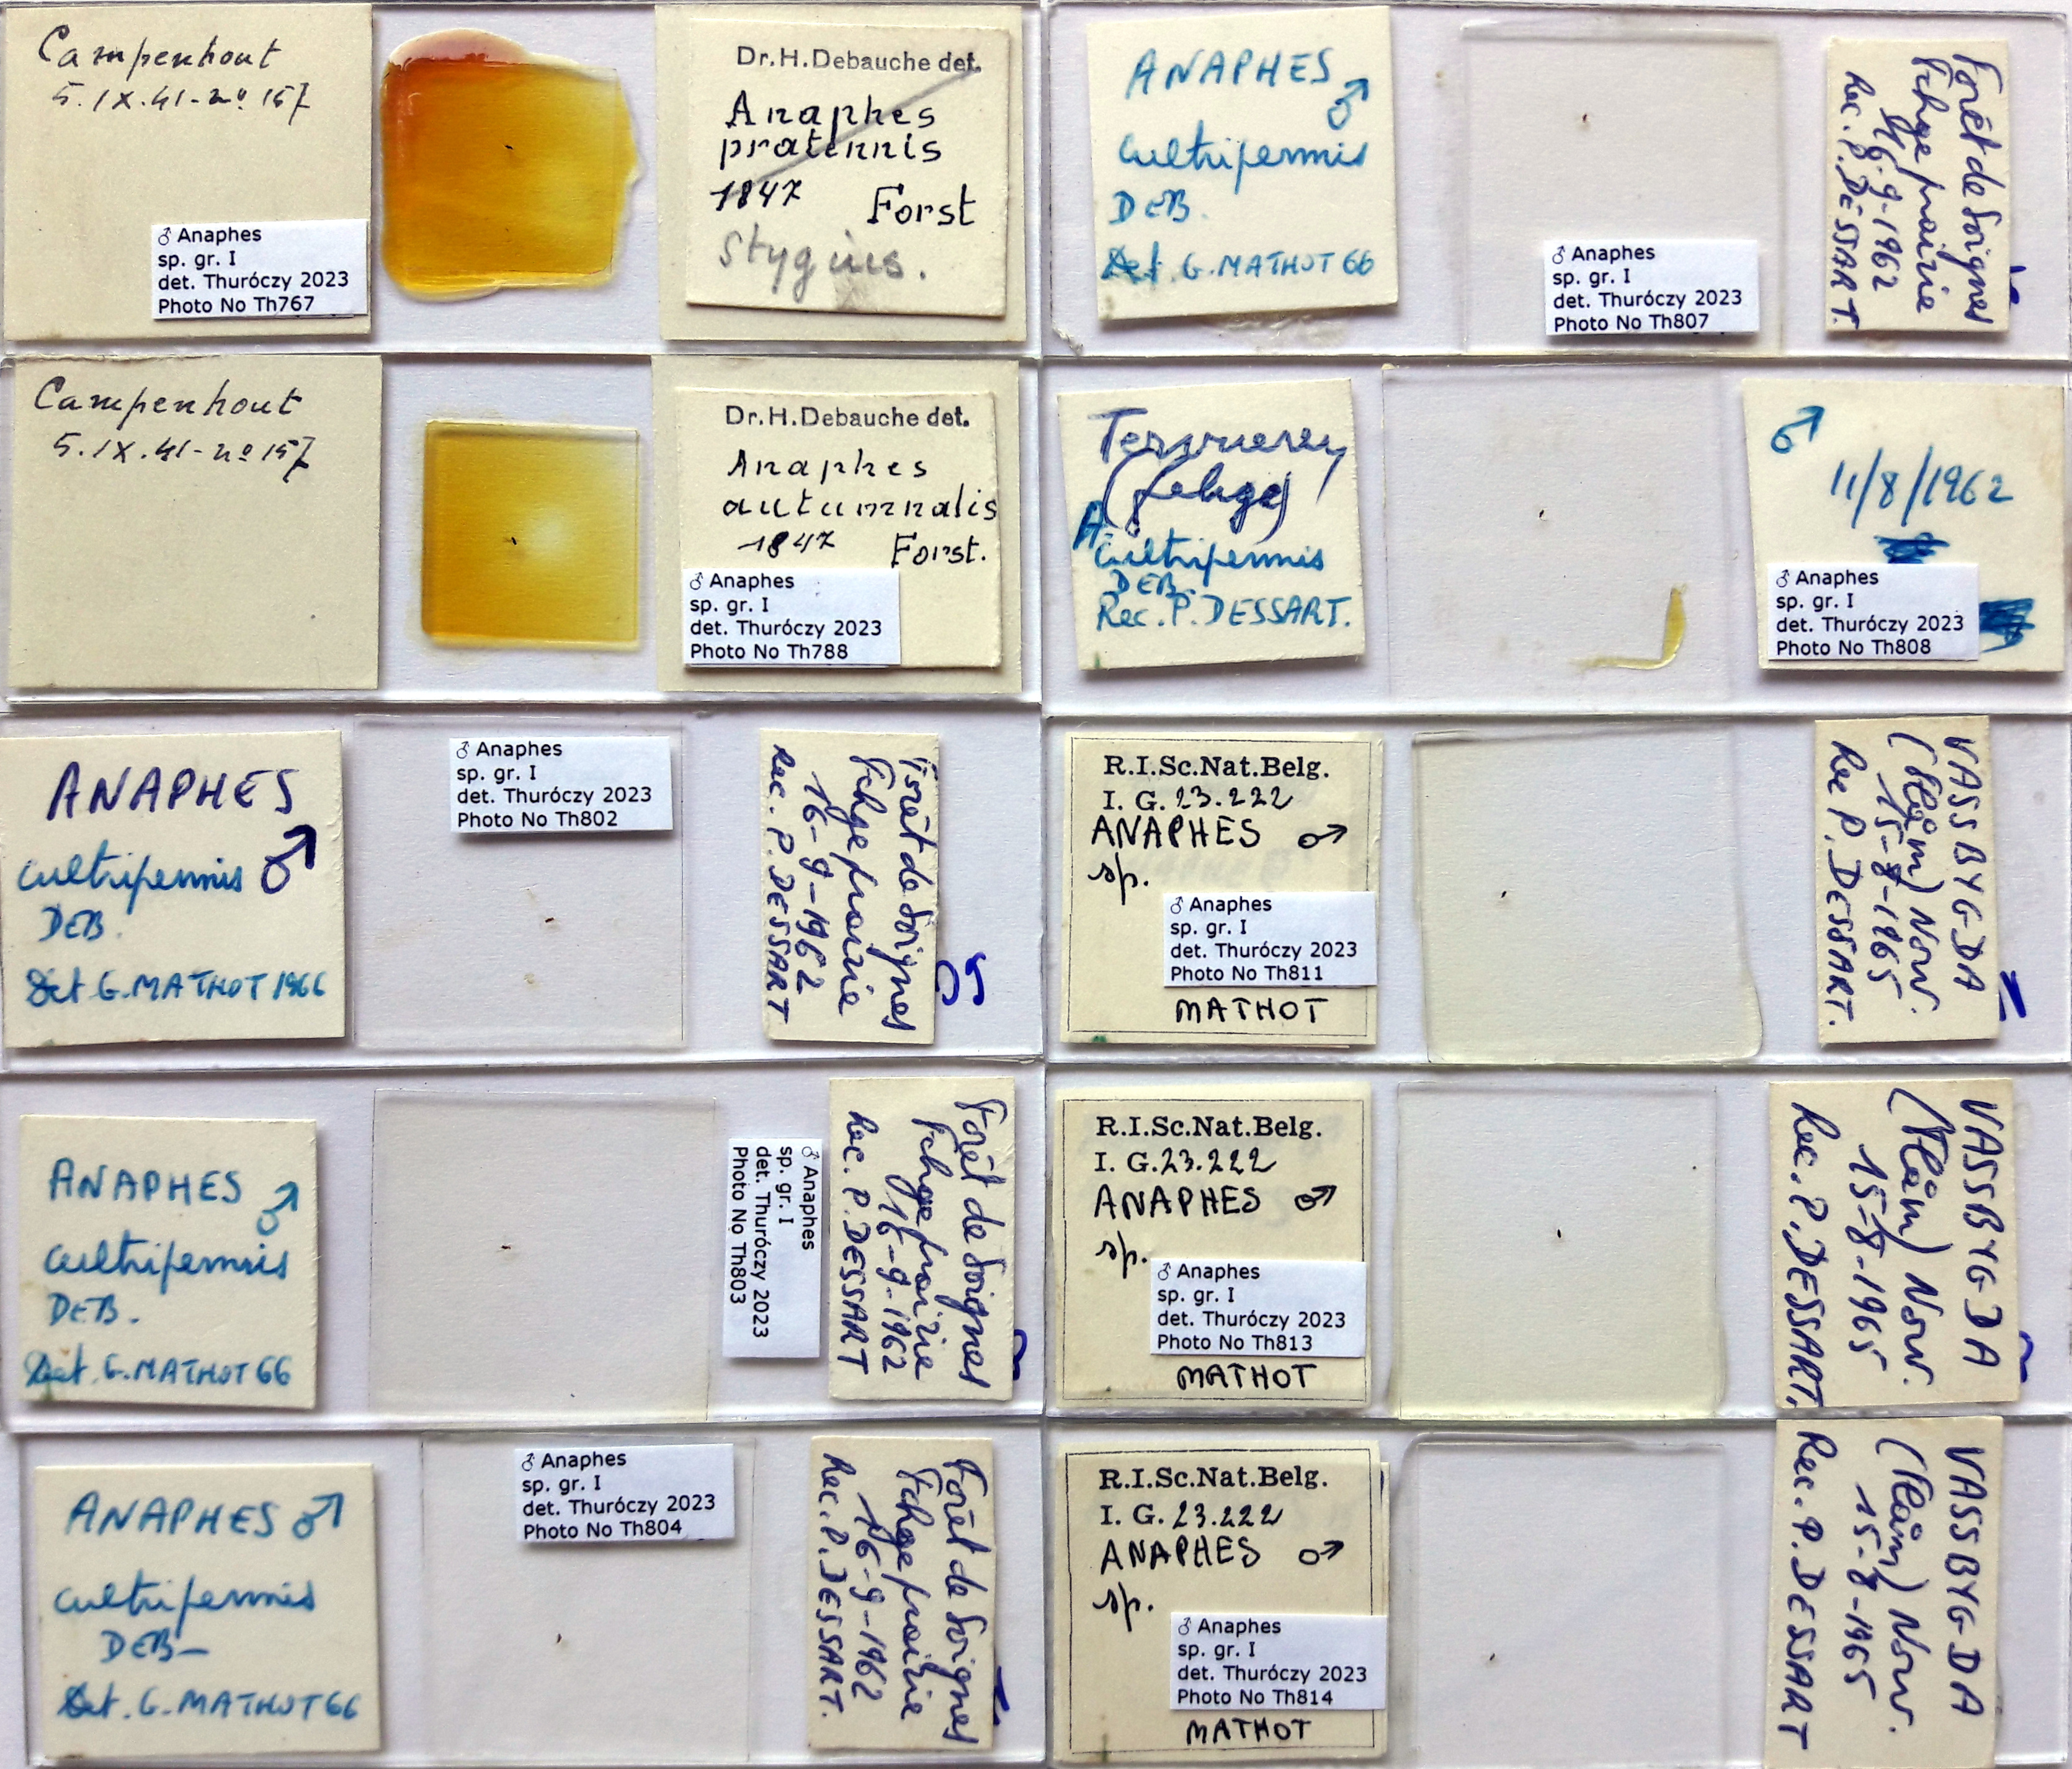 Campenhout
5.IX.41-no 157
♂ Anaphes
sp. gr. I
det. Thuróczy 2023
Photo No Th767
Dr.H.Debauche det.
Anaphes
pratensis
1847 Forst
Stygius.
ANAPHES ♂
cultripennis
DEB.
Det. G. MATHOT 66
♂ Anaphes
sp. gr. I
det. Thuróczy 2023
Photo No Th807
Forêt de Soignes
Fchge prairie
16-9-1962
Rec. P. DESSART.
Campenhout
5.IX.41-no 157
Dr.H.Debauche det.
Anaphes
autumnalis
1847 Forst.
♂ Anaphes
sp. gr. I
det. Thuróczy 2023
Photo No Th788
Tervueren
(fchge)
A. cultripennis
DEB.
Rec. P. DESSART.
♂
11/8/1962
♂ Anaphes
sp. gr. I
det. Thuróczy 2023
Photo No Th808
ANAPHES
cultripennis ♂
DEB.
Det G. MATHOT 1966
♂ Anaphes
sp. gr. I
det. Thuróczy 2023
Photo No Th802
Forêt de Soignes
Fchge prairie
16-9-1962
Rec. P. DESSART
R.I.Sc.Nat.Belg.
I. G. 23.222
ANAPHES ♂
sp.
♂ Anaphes
sp. gr. I
det. Thuróczy 2023
Photo No Th811
MATHOT
VASSBYGDA
(Flåm) Norv.
15-8-1965
Rec P. DESSART.
ANAPHES ♂
cultripennis
DEB.
Det. G. MATHOT 66
♂ Anaphes
sp. gr. I
det. Thuróczy 2023
Photo No Th803
Forêt de Soignes
Fchge prairie
16-9-1962
Rec. P. DESSART
R.I.Sc.Nat.Belg.
I. G. 23.222
ANAPHES ♂
sp.
♂ Anaphes
sp. gr. I
det. Thuróczy 2023
Photo No Th813
MATHOT
VASSBYGDA
(Flåm) Norv.
15-8-1965
Rec. P. DESSART.
ANAPHES ♂
cultripennis
DEB-
Det. G. MATHOT 66
♂ Anaphes
sp. gr. I
det. Thuróczy 2023
Photo No Th804
Forêt de Soignes
Fchge prairie
16-9-1962
Rec. P. DESSART.
R.I.Sc.Nat.Belg.
I. G. 23.222
ANAPHES ♂
sp.
♂ Anaphes
sp. gr. I
det. Thuróczy 2023
Photo No Th814
MATHOT
VASSBYGDA
(Flåm) Norv.
15-8-1965
Rec. P. DESSART